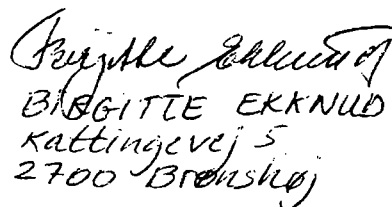 Birgitte Eklund
BIRGITTE EKKNUD
Kattingevej 5
2700 Brønshøj